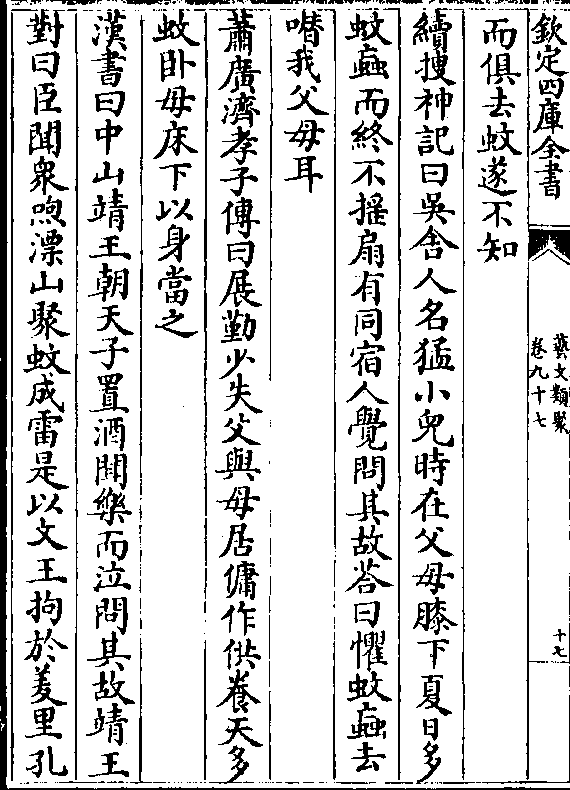 欽定四庫全書
藝文類聚
卷九十七
十七
而俱去蚊遂不知
續搜神記曰吳舍人名猛小兒時在父母膝下夏日多
蚊蝱而終不搖扇有同宿人覺問其故荅曰懼蚊蝱去
噆我父母耳
蕭廣濟孝子傳曰展勤少失父與母居傭作供養天多
蚊卧母床下以身當之
漢書曰中山靖王朝天子置酒聞樂而泣問其故靖王
對曰臣聞衆喣漂山聚蚊成雷是以文王拘於羑里孔